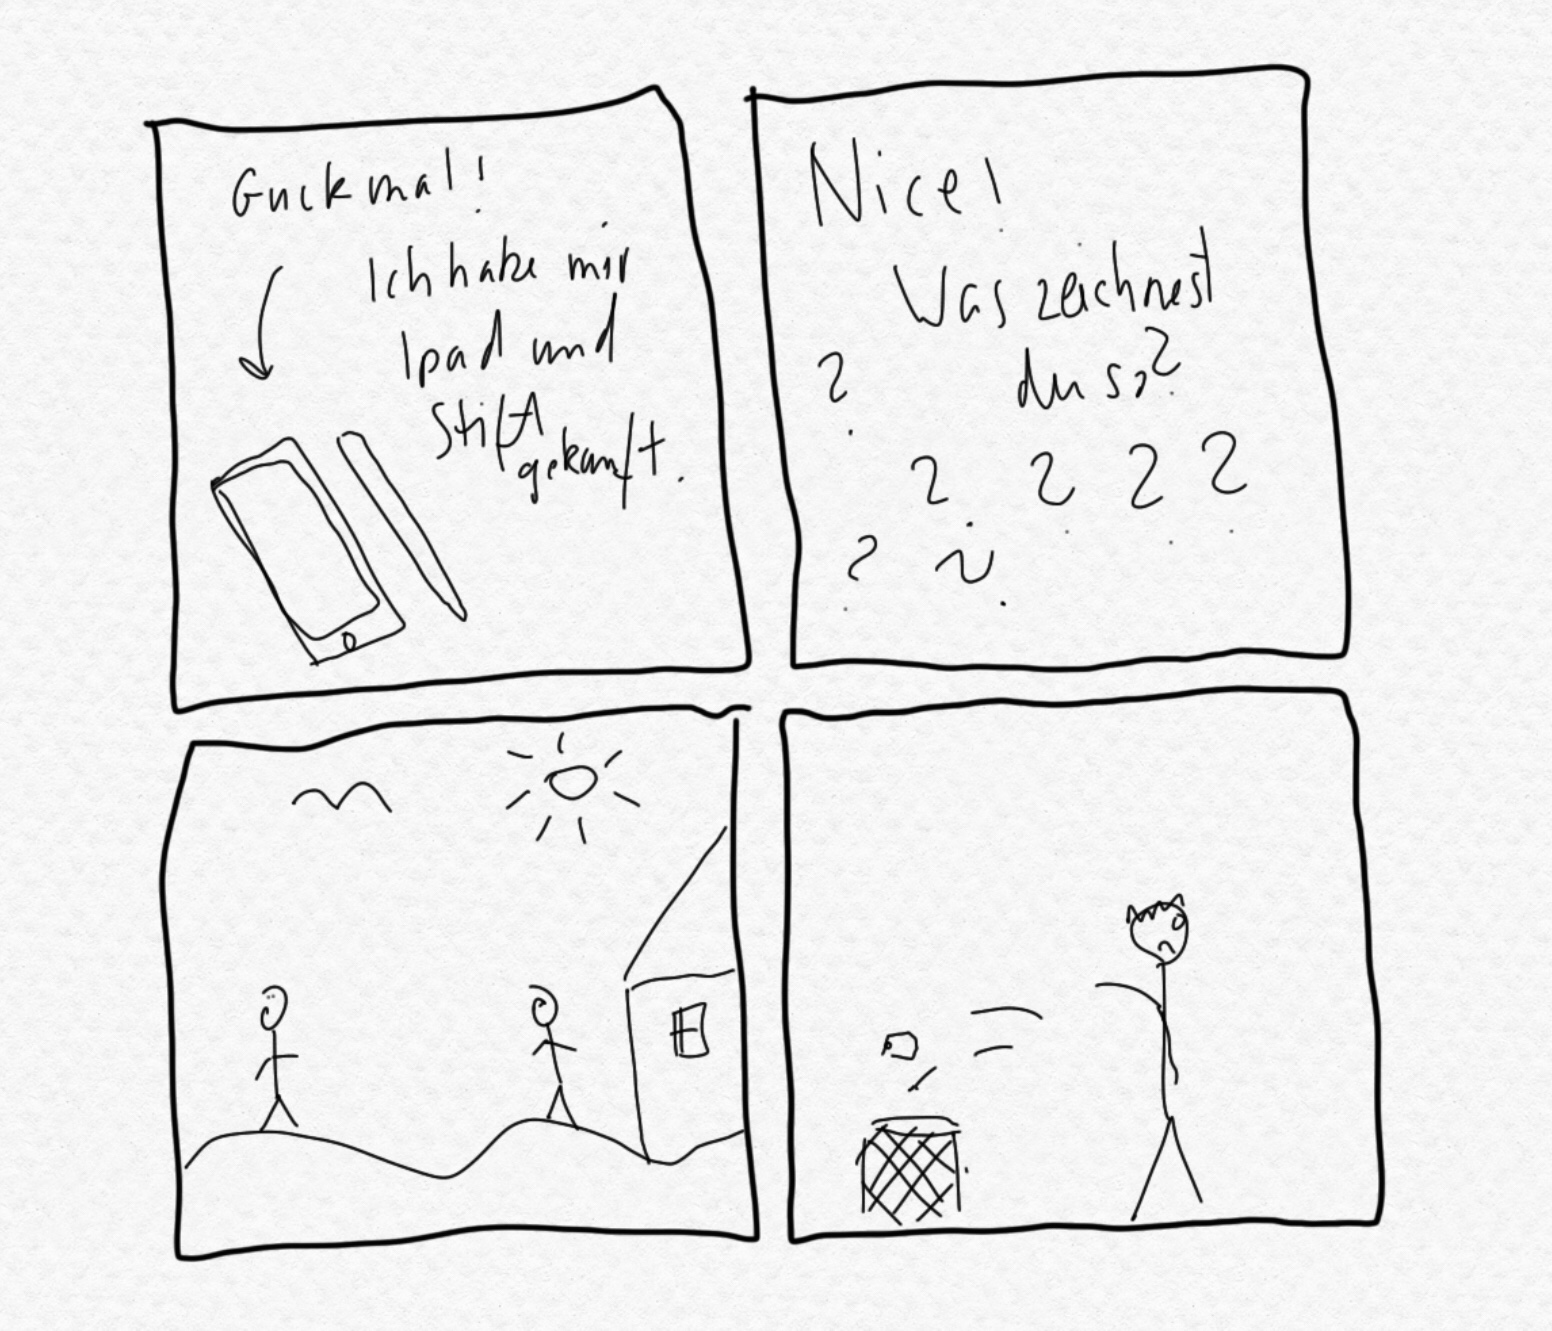 Guck mal!
Ich habe mir
Ipad und
Stift
gekauft.
Nice!
Was zeichnest
? du so?
? ? ? ?
? ?